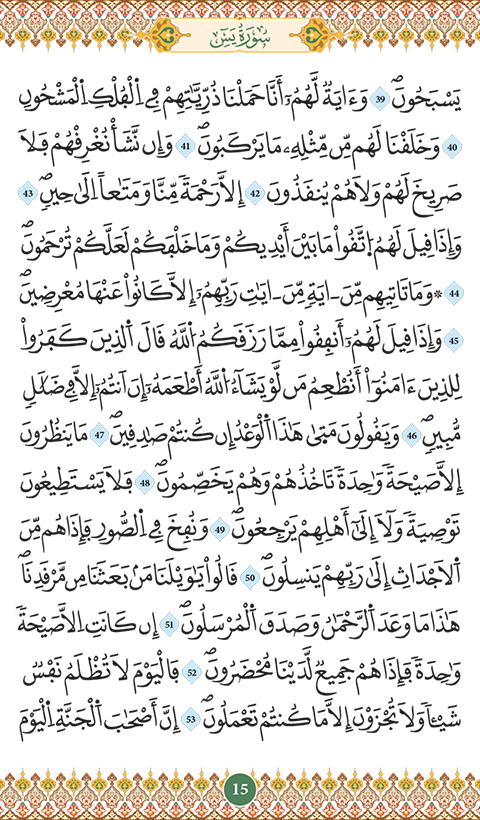 سُورَةُ يَسِٓ
يَسْبَحُونَۖ 39 وَءَايَةٌ لَّهُمُۥٓ أَنَّا حَمَلْنَا ذُرِّيَّٰتِهِمْ فِے اِ۬لْفُلْكِ اِ۬لْمَشْحُونِ
40 وَخَلَقْنَا لَهُم مِّن مِّثْلِهِۦ مَا يَرْكَبُونَۖ 41 وَإِن نَّشَأْ نُغْرِقْهُمْ فَلَا
صَرِيخَ لَهُمْ وَلَا هُمْ يُنقَذُونَ 42 إِلَّا رَحْمَةً مِّنَّا وَمَتَٰعاً اِلَىٰ حِينٖۖ 43
وَإِذَا قِيلَ لَهُمُ اُ۪تَّقُواْ مَا بَيْنَ أَيْدِيكُمْ وَمَا خَلْفَكُمْ لَعَلَّكُمْ تُرْحَمُونَۖ
44 * وَمَا تَاتِيهِم مِّنَ اٰيَةٖ مِّنَ اٰيَٰتِ رَبِّهِمُۥٓ إِلَّا كَانُواْ عَنْهَا مُعْرِضِينَۖ
45 وَإِذَا قِيلَ لَهُمُۥٓ أَنفِقُواْ مِمَّا رَزَقَكُمُ اُ۬للَّهُ قَالَ اَ۬لذِينَ كَفَرُواْ
لِلذِينَ ءَامَنُوٓاْ أَنُطْعِمُ مَن لَّوْ يَشَآءُ اُ۬للَّهُ أَطْعَمَهُۥٓ إِنَ اَنتُمُۥٓ إِلَّا فِے ضَلَٰلٖ
مُّبِينٖۖ 46 وَيَقُولُونَ مَتَىٰ هَٰذَا اَ۬لْوَعْدُ إِن كُنتُمْ صَٰدِقِينَۖ 47 مَا يَنظُرُونَ
إِلَّا صَيْحَةً وَٰحِدَةً تَاخُذُهُمْ وَهُمْ يَخَصِّمُونَۖ 48 فَلَا يَسْتَطِيعُونَ
تَوْصِيَةً وَلَآ إِلَىٰٓ أَهْلِهِمْ يَرْجِعُونَۖ 49 وَنُفِخَ فِے اِ۬لصُّورِ فَإِذَا هُم مِّنَ
اَ۬لَاجْدَاثِ إِلَىٰ رَبِّهِمْ يَنسِلُونَۖ 50 قَالُواْ يَٰوَيْلَنَا مَنۢ بَعَثَنَا مِن مَّرْقَدِنَاۖ
هَٰذَا مَا وَعَدَ اَ۬لرَّحْمَٰنُ وَصَدَقَ اَ۬لْمُرْسَلُونَۖ 51 إِن كَانَتِ اِلَّا صَيْحَةً
وَٰحِدَةً فَإِذَا هُمْ جَمِيعٌ لَّدَيْنَا مُحْضَرُونَۖ 52 فَالْيَوْمَ لَا تُظْلَمُ نَفْسٌ
شَيْـٔاً وَلَا تُجْزَوْنَ إِلَّا مَا كُنتُمْ تَعْمَلُونَۖ 53 إِنَّ أَصْحَٰبَ اَ۬لْجَنَّةِ اِ۬لْيَوْمَ
15